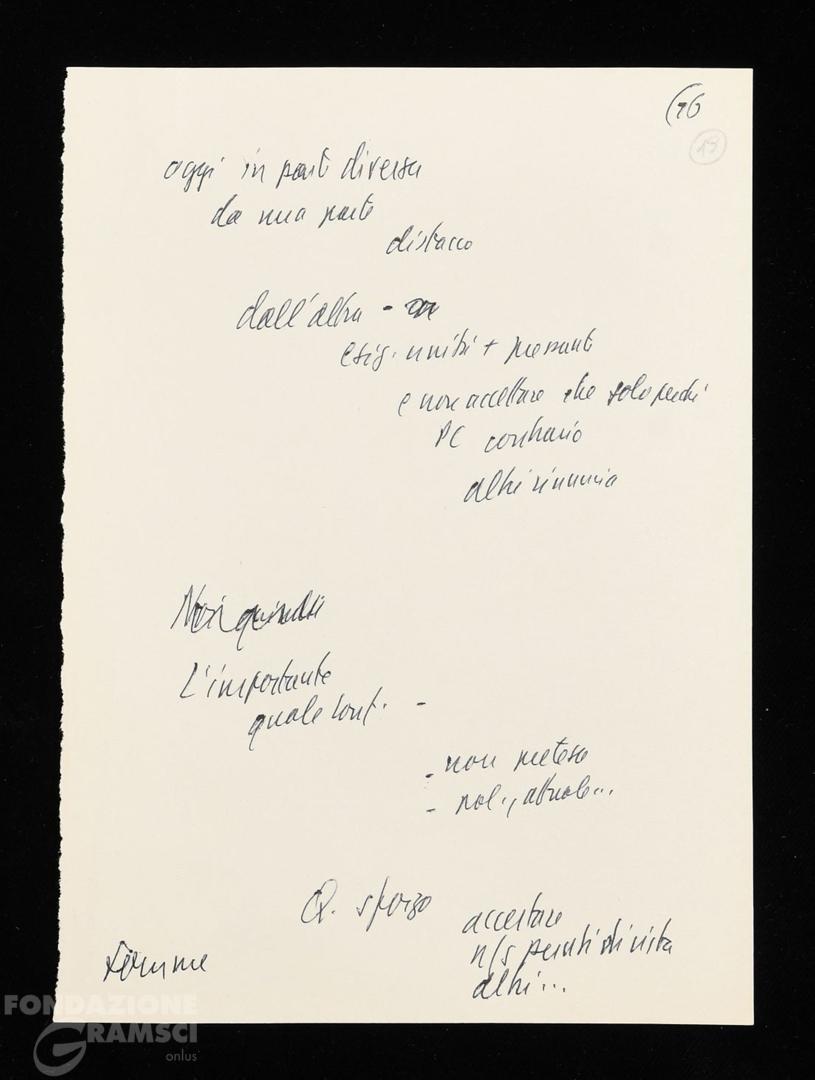 (16
19
oggi in parte diversa
da una parte
distacco
dall'altra -
esig. unità + pressante
e non accettare che solo perché
PC contrario
altri rinuncia
Noi quindi
L'importante
quale conf. -
- non pretesa
- pol., attuale...
Q. sforzo
accertare
n/s punti di vista
altri...
Lemme
FONDAZIONE
GRAMSCI
onlus